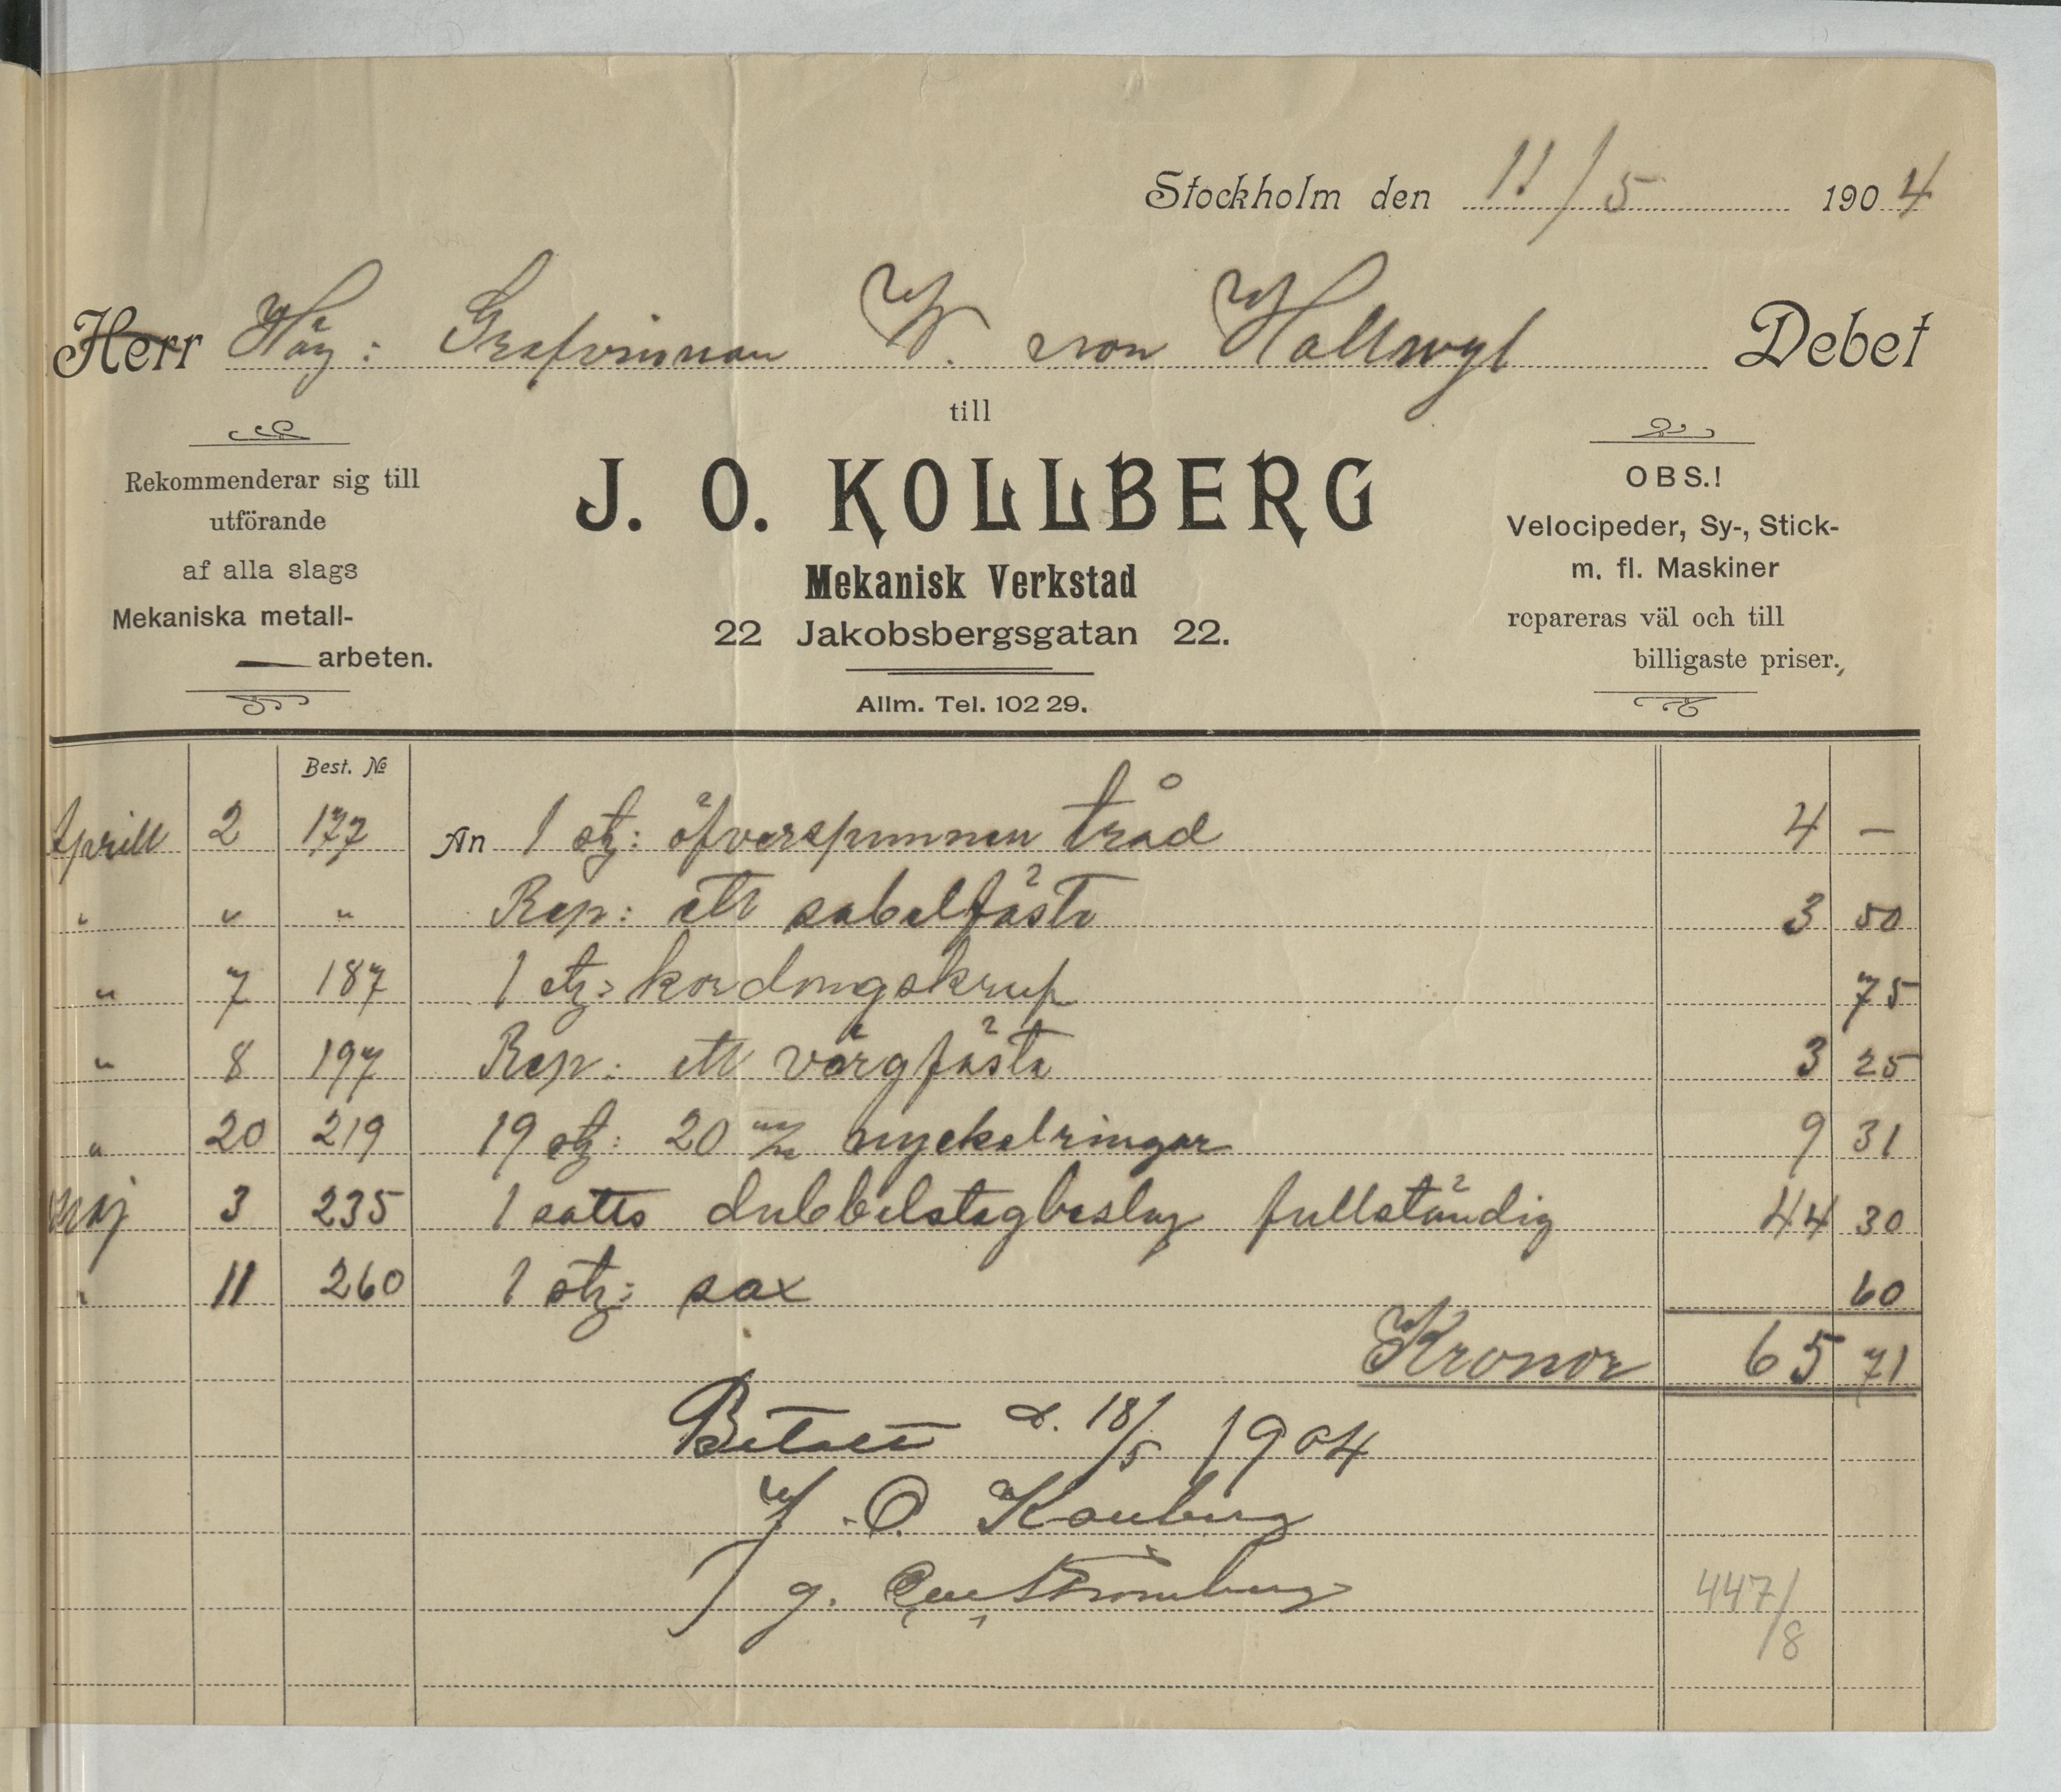 Stockholm den 11/5 1904
Herr Häg: Grefvinnan W. von Hallwyl Debet
till
J. O. KOLLBERG
Mekanisk Verkstad
22 Jakobsbergsgatan 22.
Allm. Tel. 102 29.
Rekommenderar sig till
utförande
af alla slags
Mekaniska metall-
arbeten.
OBS.!
Velocipeder, Sy-, Stick-
m. fl. Maskiner
repareras väl och till
billigaste priser.
Best. №
Aprill 2 177 An 1 st: öfverspunnen tråd 4 —
" " " Rep: ett sabelfäste 3 50
" 7 187 1 st: kordongskruf 75
" 8 197 Rep: ett värgfäste 3 25
" 20 219 19 st: 20 m/m nyckelringar 9 31
Maj 3 235 1 satts dubbelstagbeslag fullständig 44 30
" 11 260 1 st: sax 60
Kronor 65 71
Betalt d. 18/5 1904
J. O. Kollberg
g.
447/8